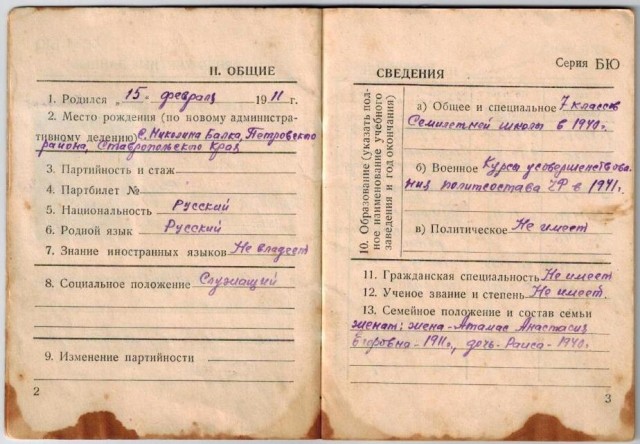 II. ОБЩИЕ
1. Родился 15 февраля 1911 г.
2. Место рождения (по новому администра-
тивному делению) С. Николина Балка, Петровского
района, Ставропольского Края
3. Партийность и стаж
4. Партбилет №
5. Национальность Русский
6. Родной язык Русский
7. Знание иностранных языков Не владеет
8. Социальное положение Служащий
9. Изменение партийности
2
Серия БЮ
СВЕДЕНИЯ
10. Образование (указать пол-
ное наименование учебного
заведения и год окончания)
а) Общее и специальное 7 классов
Семилетной школы в 1940г.
б) Военное Курсы усовершенствова-
ния политсостава в 1941г.
в) Политическое Не имеет
11. Гражданская специальность Не имеет
12. Ученое звание и степень Не имеет.
13. Семейное положение и состав семьи
женат: жена - Атамас Анастасия
Егоровна - 1911г., дочь - Раиса - 1940г.
3